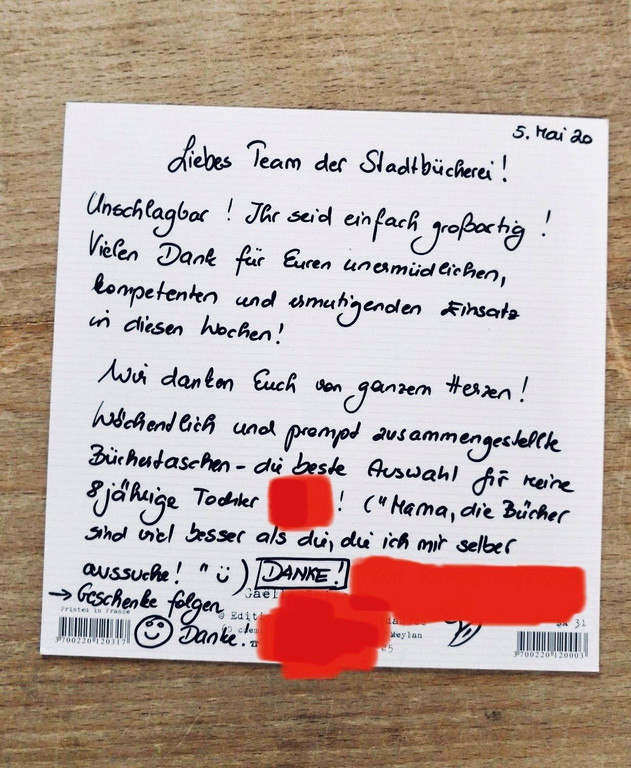 5. Mai 20
Liebes Team der Stadtbücherei!
Unschlagbar! Ihr seid einfach großartig!
Vielen Dank für Euren unermüdlichen,
kompetenten und ermutigenden Einsatz
in diesen Wochen!
Wir danken Euch von ganzem Herzen!
Wöchentlich und prompt zusammengestellte
Büchertaschen - die beste Auswahl für meine
8jährige Tochter ! ("Mama, die Bücher
sind viel besser als die, die ich mir selber
aussuche!" ü) DANKE!
→ Geschenke folgen
Gaël
Printed in France
© Editi
Meylan
JK 31
3700220120317
Danke!
3700220120003